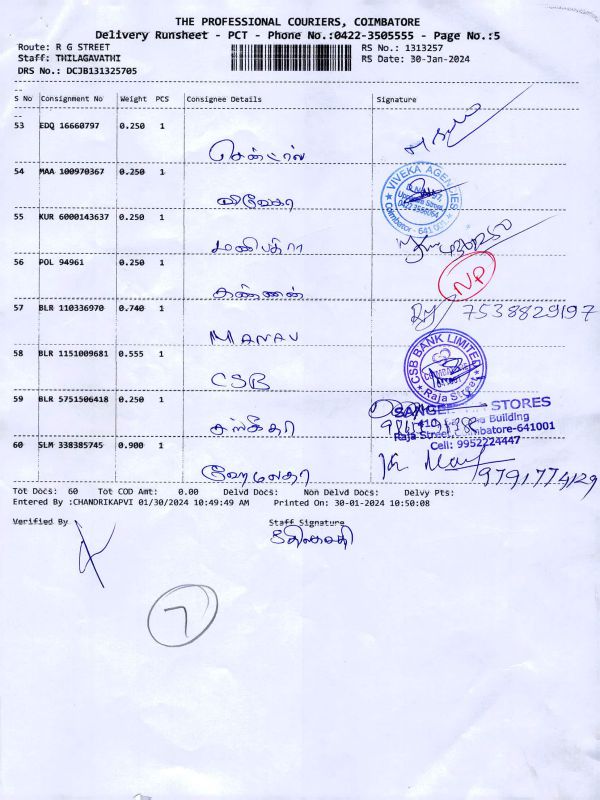 THE PROFESSIONAL COURIERS, COIMBATORE
Delivery Runsheet - PCT - Phone No.:0422-3505555 - Page No.:5
Route: R G STREET RS No.: 1313257
Staff: THILAGAVATHI RS Date: 30-Jan-2024
DRS No.: DCJB131325705
S No Consignment No Weight PCS Consignee Details Signature
53 EDQ 16660797 0.250 1
சென்ட்ரல்
54 MAA 100970367 0.250 1
விவேகா
VIVEKA AGENCIES
Coimbatore - 641 001
55 KUR 6000143637 0.250 1
மணிபத்ரா
56 POL 94961 0.250 1
கண்ணன்
NP
57 BLR 110336970 0.740 1
MANAV
7538829197
58 BLR 1151009681 0.555 1
CSB
CSB BANK LIMITED
COIMBATORE
Raja Street
59 BLR 5751506418 0.250 1
சங்கீதா
STORES
Building
Raja Street, Coimbatore-641001
Cell: 9952224447
60 SLM 338385745 0.900 1
ஹேமலதா
9791774129
Tot Docs: 60 Tot COD Amt: 0.00 Delvd Docs: Non Delvd Docs: Delvy Pts:
Entered By :CHANDRIKAPVI 01/30/2024 10:49:49 AM Printed On: 30-01-2024 10:50:08
Verified By Staff Signature
7